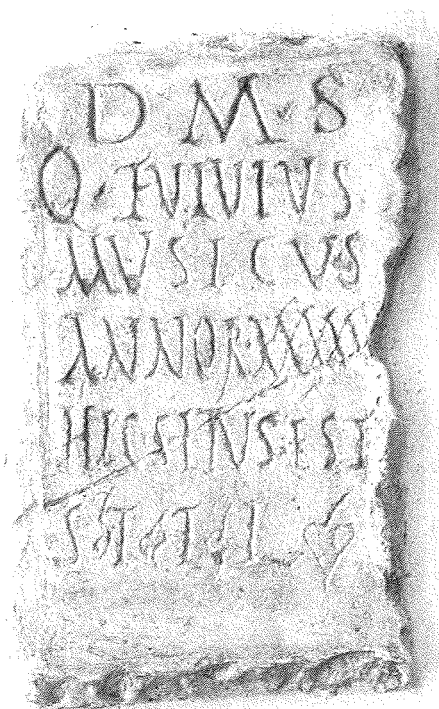 D M S
Q FVLVIVS
MVSICVS
ANNOR XXXIII
HIC SITVS EST
S T T L